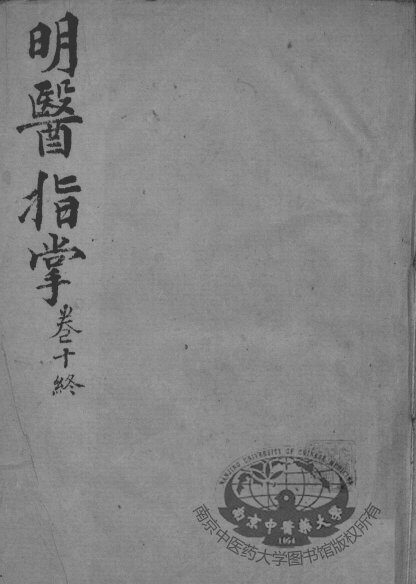 明醫指掌
卷十終
NANJING UNIVERSITY OF CHINESE MEDICINE
南京中醫藥大學
1954
南京中医药大学图书馆版权所有